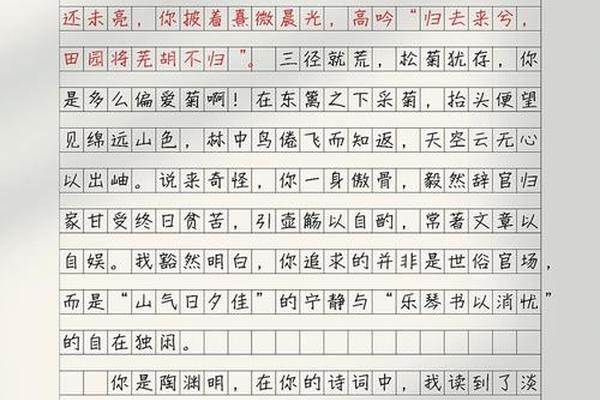 还未亮，你披着熹微晨光，高吟“归去来兮，
田园将芜胡不归”。三径就荒，松菊犹存，你
是多么偏爱菊啊！在东篱之下采菊，抬头便望
见绵远山色，林中鸟倦飞而知返，天空云无心
以出岫。说来奇怪，你一身傲骨，毅然辞官归
家甘受终日贫苦，引壶觞以自酌，常著文章以
自娱。我豁然明白，你追求的并非是世俗官场，
而是“山气日夕佳”的宁静与“乐琴书以消忧”
的自在独闲。
你是陶渊明，在你的诗词中，我读到了淡